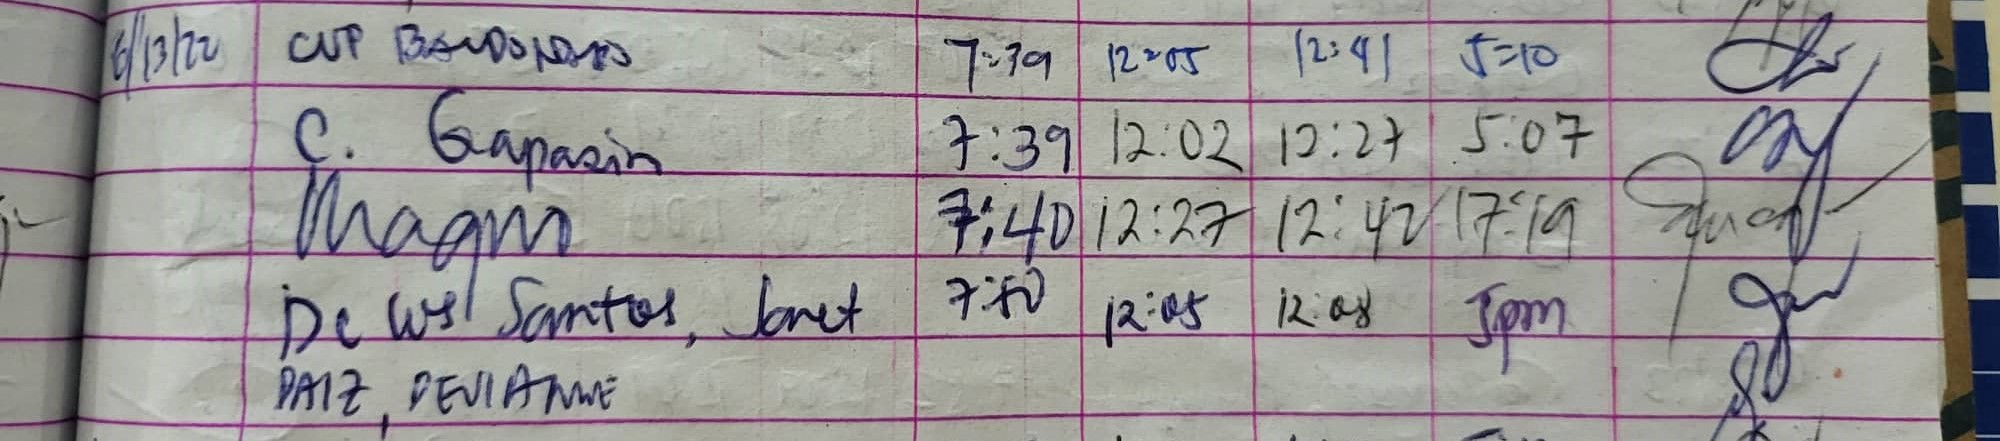 6/13/22 CUP 7:39 12:05 12:41 5:10
C. Gapasin 7:39 12:02 12:27 5:07
Magno 7:40 12:27 12:42 17:19
De los Santos, Janet 7:50 12:05 12:08 5pm
PAIZ, DEVIANNE